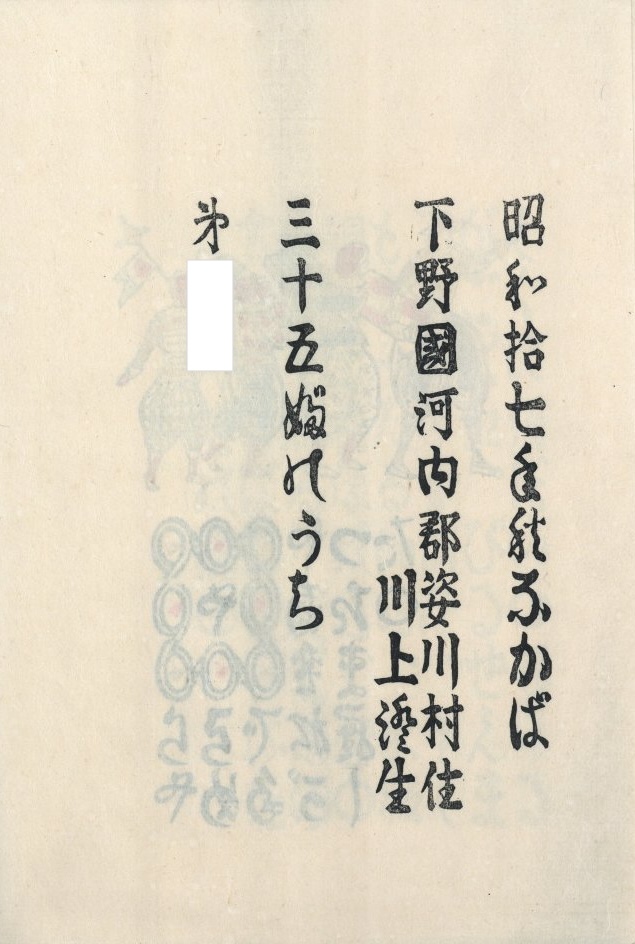 昭和拾七年秋なかば
下野國河内郡姿川村住
川上澄生
三十五のうち
第